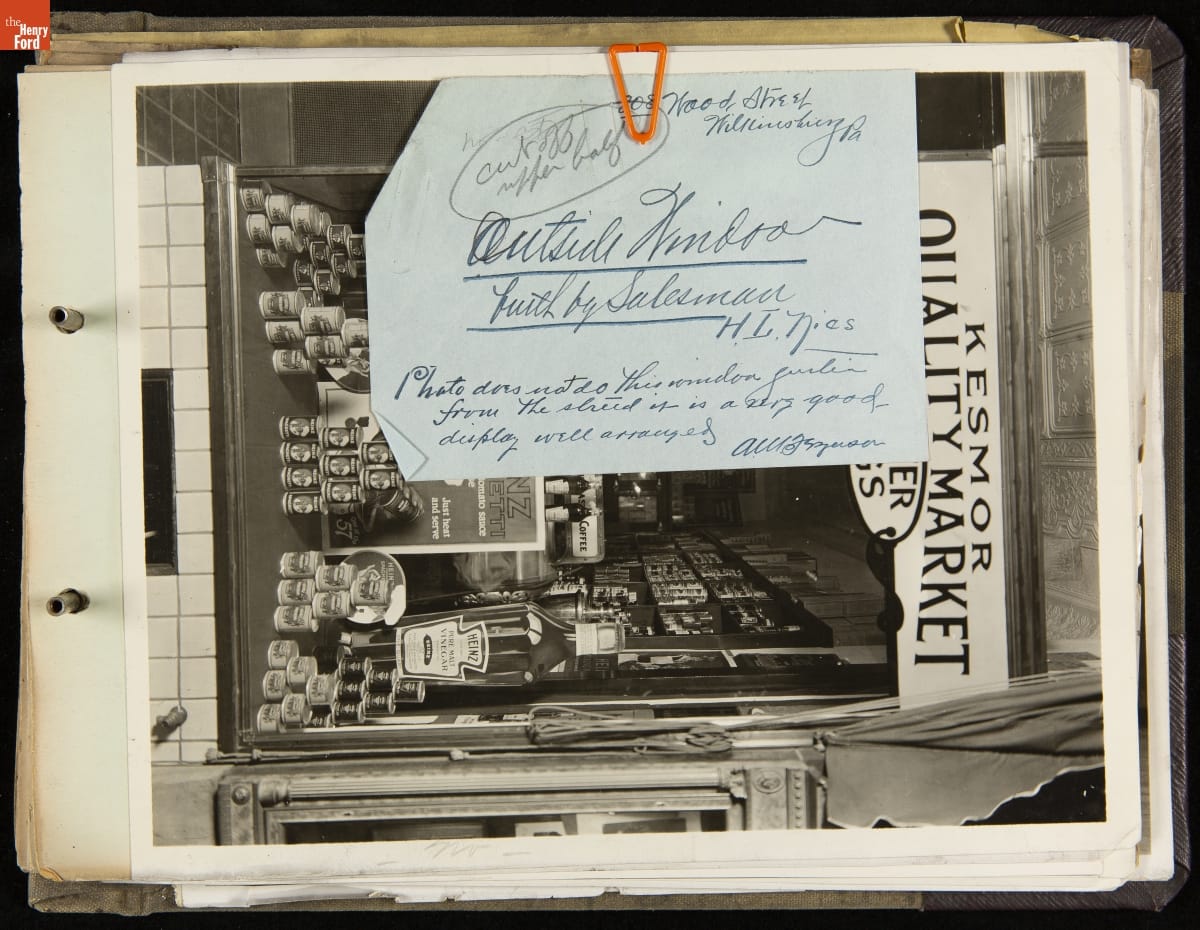 the
Henry
Ford
808 Wood Street
Wilkinsburg Pa
cut off
upper half
Outside Window
built by Salesman
H. L. Nies
Photo does not do this window justice
from the street it is a very good
display well arranged
A.M. Ferguson
KESMOR
QUALITY MARKET
ER
GS
NZ
ETTI
tomato sauce
Just heat
and serve
57
COFFEE
HEINZ
HEINZ
PURE MALT
VINEGAR